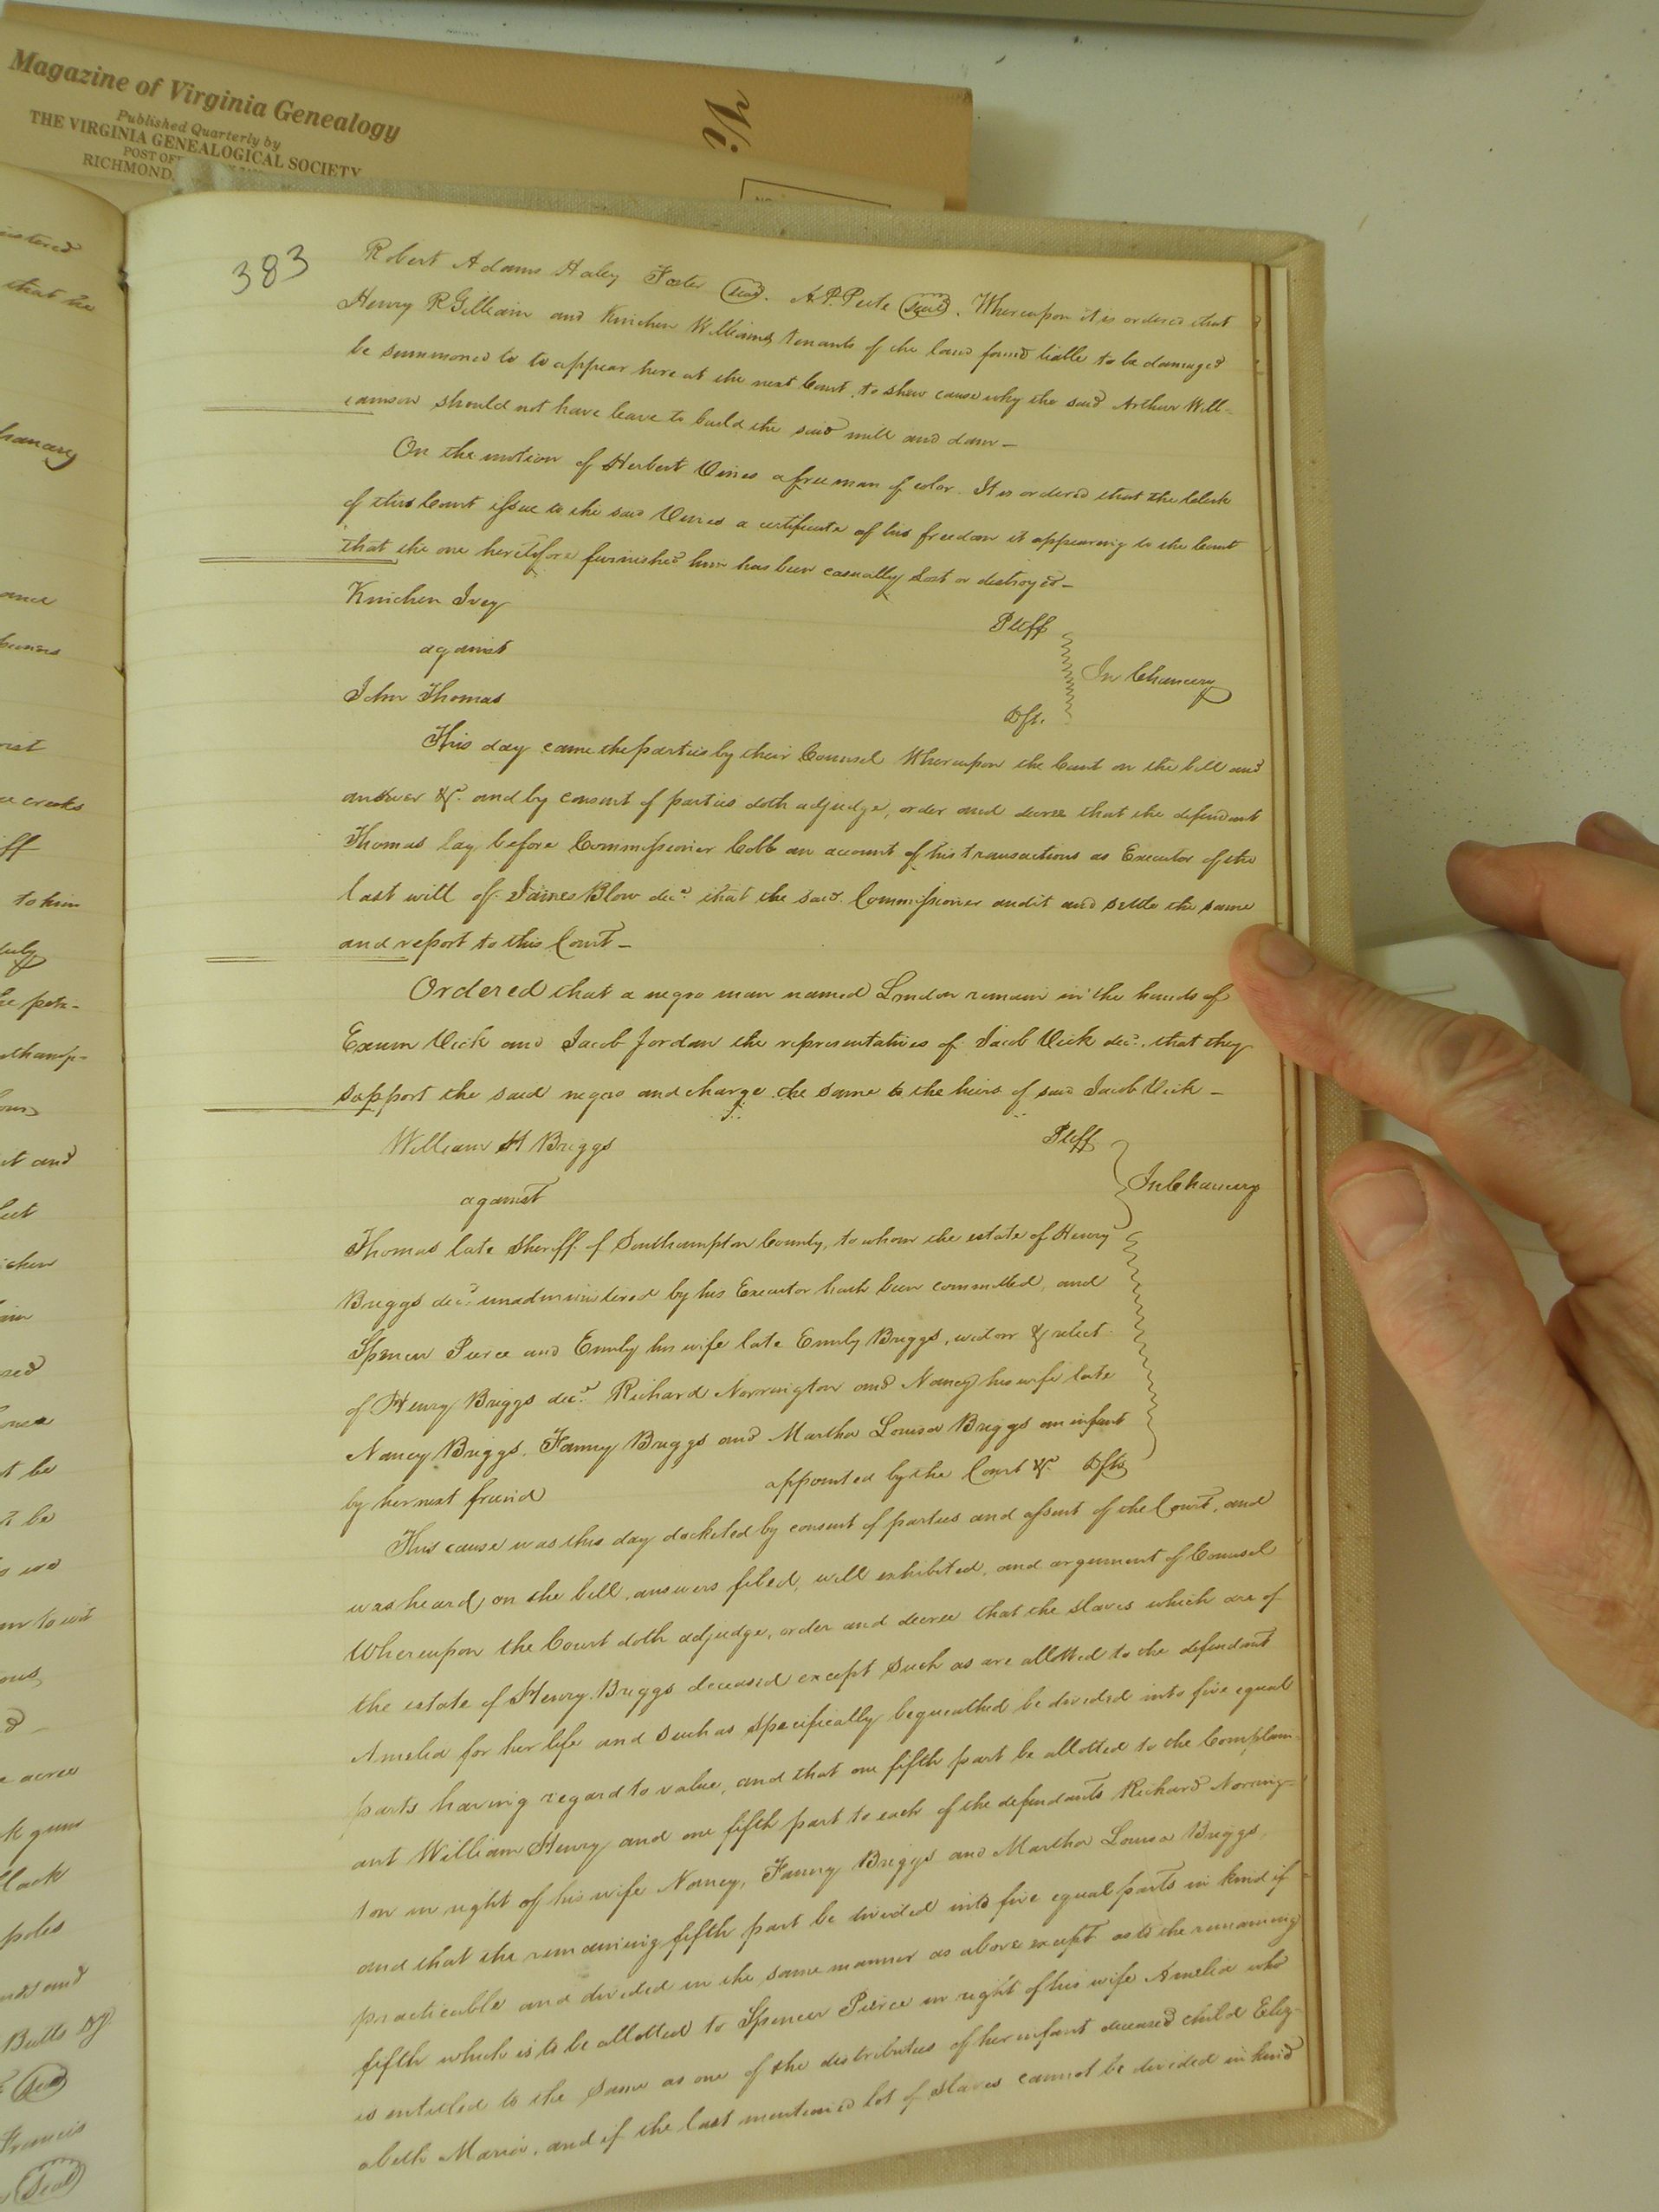 Magazine of Virginia Genealogy
Published Quarterly by
THE VIRGINIA GENEALOGICAL SOCIETY
POST OF
RICHMOND,
Va
383
Robert Adams Haley Foster (seal). A.P. Peete (seal). Whereupon it is ordered that
Henry R Gilliam and Kinchen Williams tenants of the land found liable to be damaged
be summoned to to appear here at the next Court, to shew cause why the said Arthur Will-
iamson should not have leave to build the said mill and dam –
On the motion of Herbert Vines a free man of color. It is ordered that the Clerk
of this Court issue to the said Vines a certificate of his freedom it appearing to the Court
that the one heretofore furnished him has been casually lost or destroyed –
Kinchen Ivey Pltff
against In Chancery
John Thomas Dft.
This day came the parties by their Counsel Whereupon the Court on the bill and
answer &c. and by consent of parties doth adjudge, order and decree that the defendant
Thomas lay before Commissioner Cobb an account of his transactions as Executor of the
last will of James Blow decd. that the said Commissioner audit and settle the same
and report to this Court –
Ordered that a negro man named London remain in the hands of
Exum Vick and Jacob Jordan the representatives of Jacob Vick decd. that they
support the said negro and charge the same to the heirs of said Jacob Vick –
William H Briggs Pltff
against In Chancery
Thomas late Sheriff of Southampton County, to whom the estate of Henry
Briggs decd. unadministered by his Executor hath been committed, and
Spencer Pierce and Emily his wife late Emily Briggs, widow & relict
of Henry Briggs decd. Richard Norrington and Nancy his wife late
Nancy Briggs, Fanny Briggs and Martha Louisa Briggs an infant
by her next friend appointed by the Court &c. Dfts
This cause was this day docketed by consent of parties and assent of the Court, and
was heard on the bill, answers filed, will exhibited, and argument of Counsel
Whereupon the Court doth adjudge, order and decree that the slaves which are of
the estate of Henry Briggs deceased except such as are allotted to the defendant
Amelia for her life and such as specifically bequeathed be divided into five equal
parts having regard to value, and that one fifth part be allotted to the Complain-
ant William Henry and one fifth part to each of the defendants Richard Norring-
ton in right of his wife Nancy, Fanny Briggs and Martha Louisa Briggs,
and that the remaining fifth part be divided into five equal parts in kind if
practicable and divided in the same manner as above except as to the remaining
fifth which is to be allotted to Spencer Pierce in right of his wife Amelia who
is entitled to the same as one of the distributees of her infant deceased child Eliz-
abeth Maria, and if the last mentioned lot of slaves cannot be divided in kind